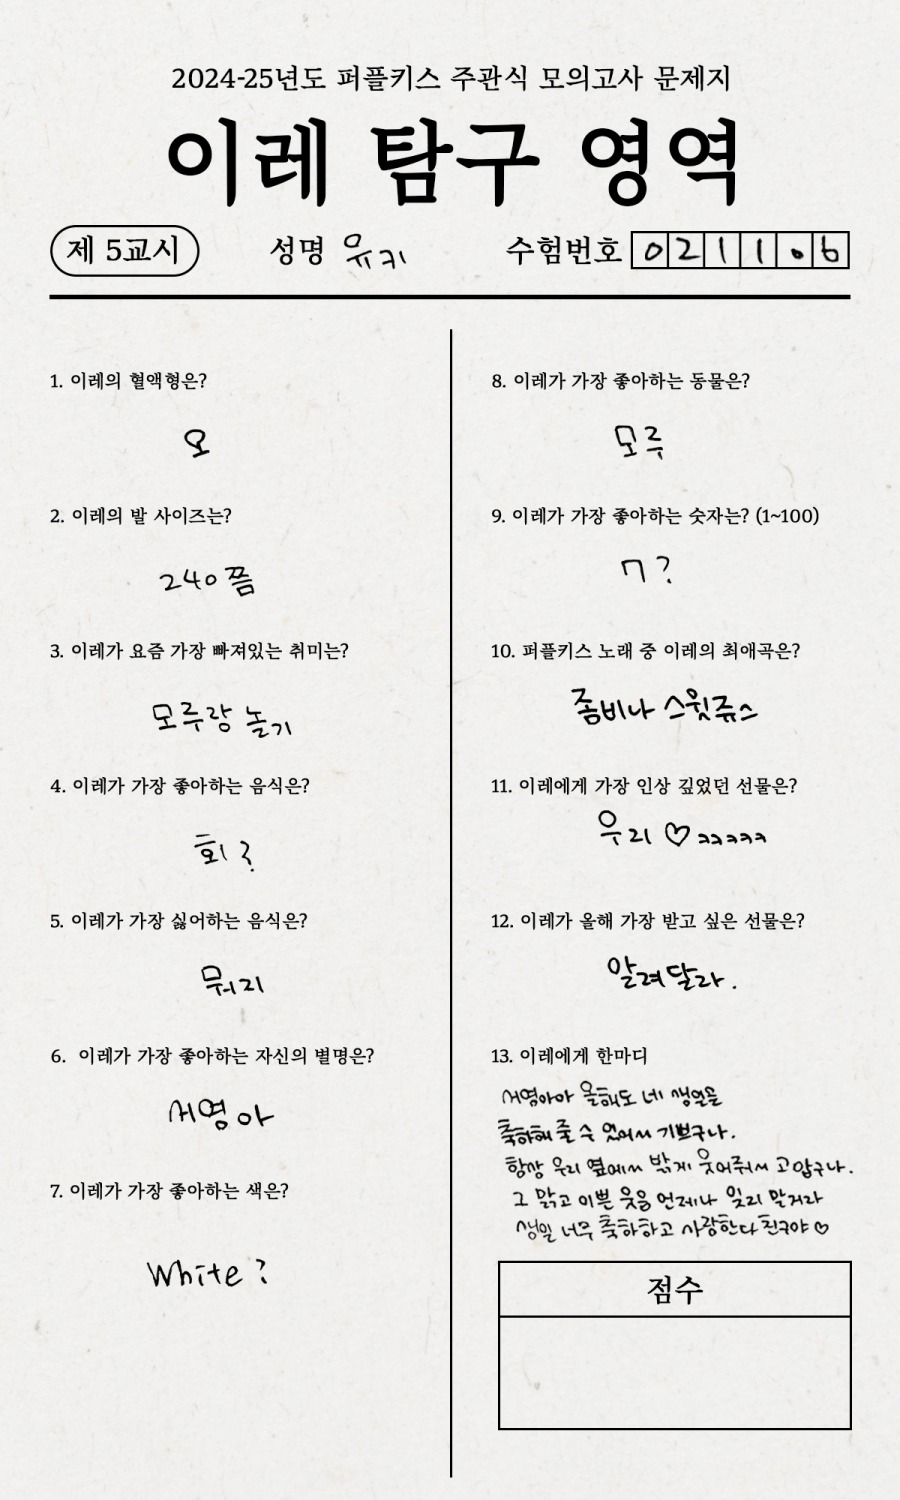 2024-25년도 퍼플키스 주관식 모의고사 문제지
이레 탐구 영역
제 5교시
성명 유키
수험번호 0211.6
1. 이레의 혈액형은?
오
2. 이레의 발 사이즈는?
240쯤
3. 이레가 요즘 가장 빠져있는 취미는?
모루랑 놀기
4. 이레가 가장 좋아하는 음식은?
회?
5. 이레가 가장 싫어하는 음식은?
뭐리
6. 이레가 가장 좋아하는 자신의 별명은?
서영아
7. 이레가 가장 좋아하는 색은?
White?
8. 이레가 가장 좋아하는 동물은?
모루
9. 이레가 가장 좋아하는 숫자는? (1~100)
7?
10. 퍼플키스 노래 중 이레의 최애곡은?
좀비나 스윗쥬스
11. 이레에게 가장 인상 깊었던 선물은?
우리♡ㅋㅋㅋㅋㅋ
12. 이레가 올해 가장 받고 싶은 선물은?
알려달라.
13. 이레에게 한마디
서영아아 올해도 네 생일을
축하해 줄 수 있어서 기쁘구나.
항상 우리 옆에서 밝게 웃어줘서 고맙구나.
그 맑고 이쁜 웃음 언제나 잃지 말거라
생일 너무 축하하고 사랑한다 친구야♡
점수